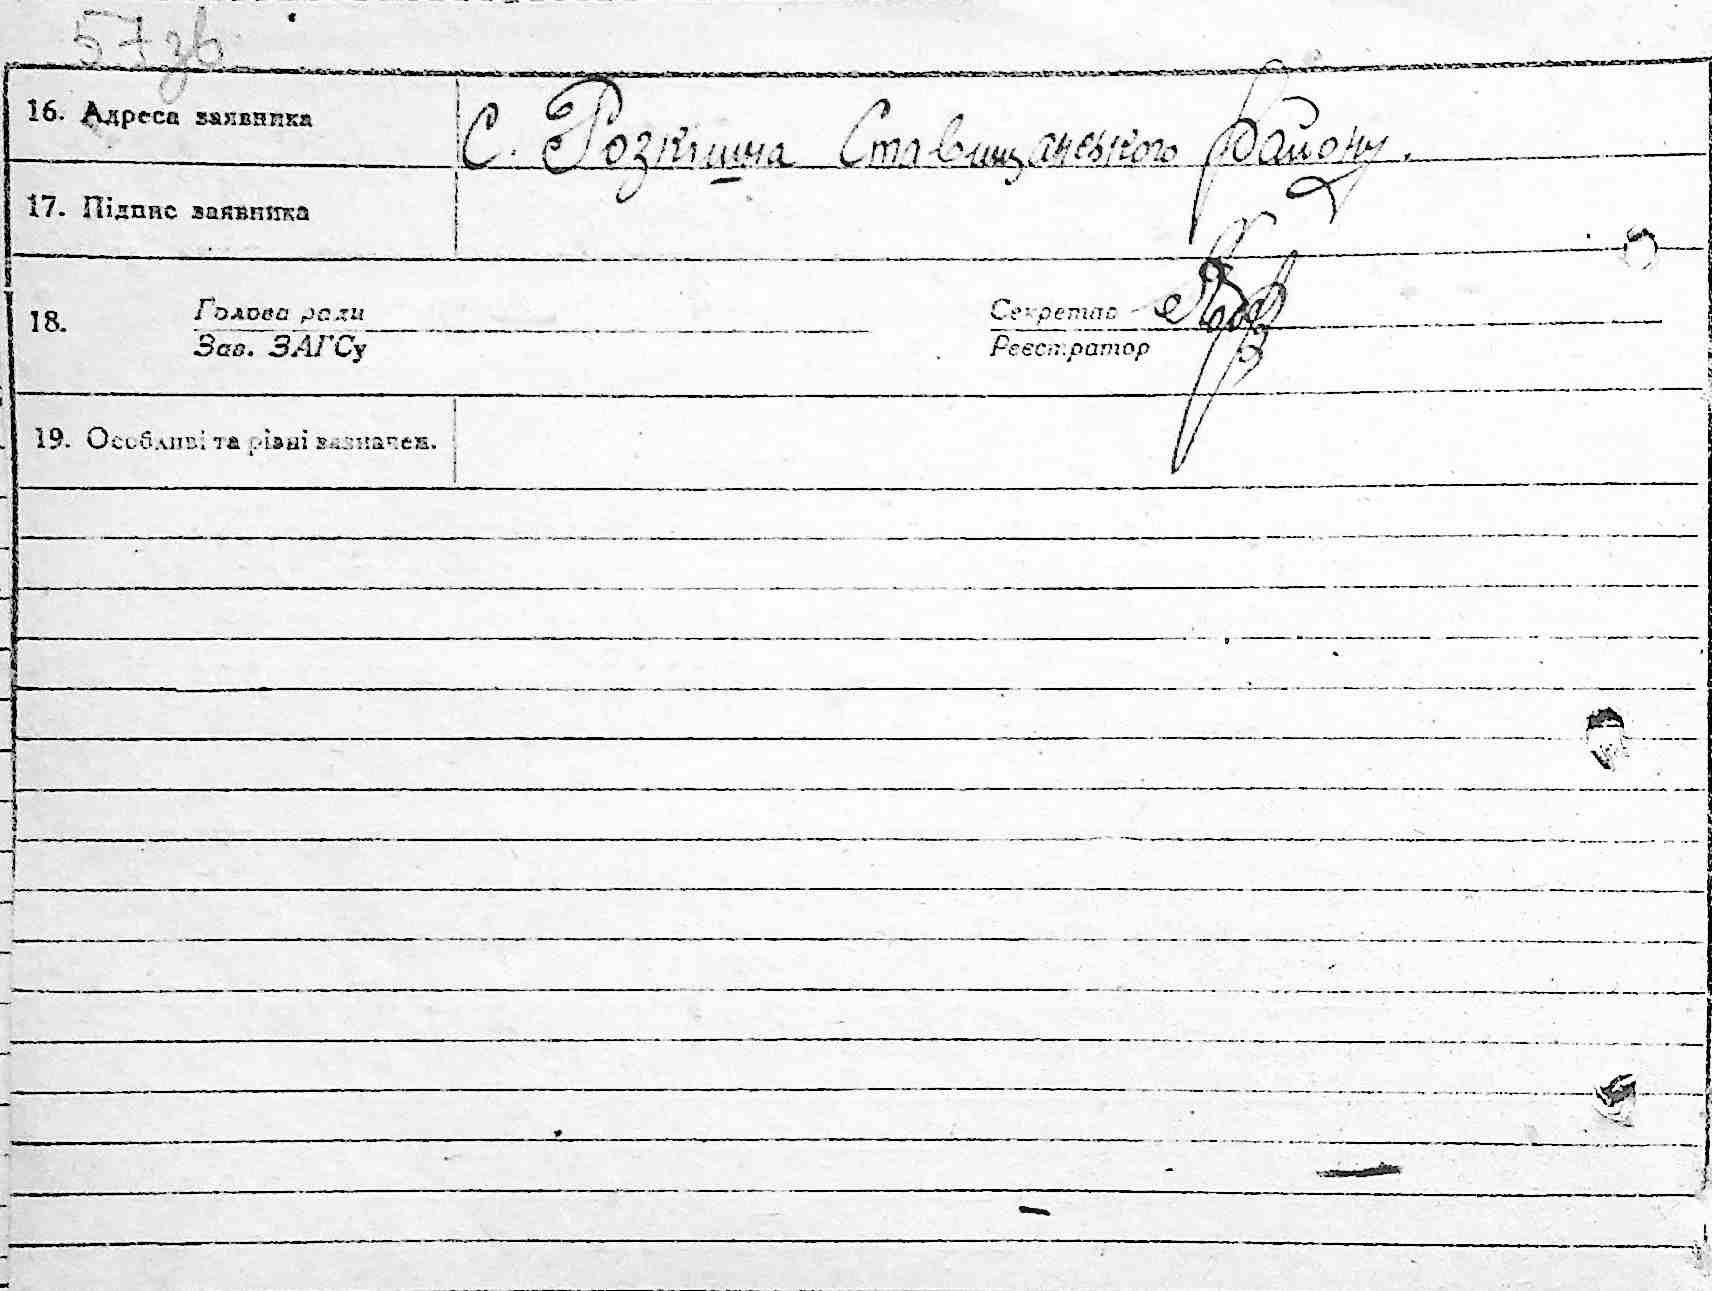 57 зв.
16. Адреса заявника
С. Розкішна Ставищанського району.
17. Підпис заявника
18.
Голова ради
Зав. ЗАГСу
Секретар
Реєстратор
19. Особливі та різні зазначен.